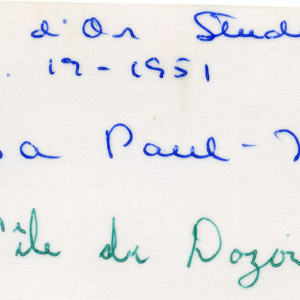 d'Or Stud
. 19-1951
a Paul-
île du Dozois